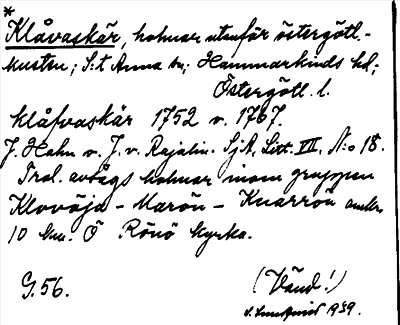 *
Klåvaskär, holmar utanför östergötl.-
kusten; S:t Anna sn; Hammarkinds hd;
Östergötl. l.
Klåfvaskär 1752 v. 1767.
J. Hahn v. J. v. Rajalin. SjA, Litt. VII, N:o 18.
Trol. avtogs holmar inom gruppen
Klovöja - Marön - Knarrön
10 km. Ö Rönö kyrka.
G. 56.
(Vänd!)
1939.